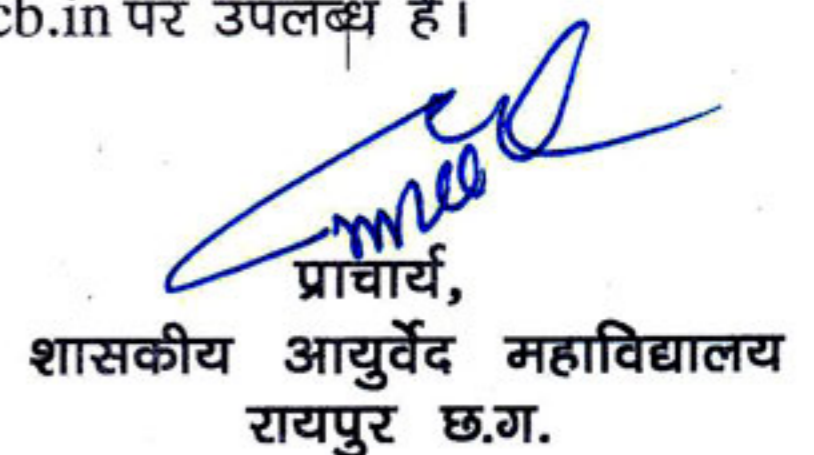 cb.in पर उपलब्ध है।
प्राचार्य,
शासकीय आयुर्वेद महाविद्यालय
रायपुर छ.ग.